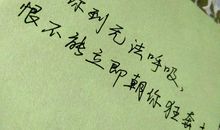 你到无法呼吸,
恨不能立即朝你狂奔